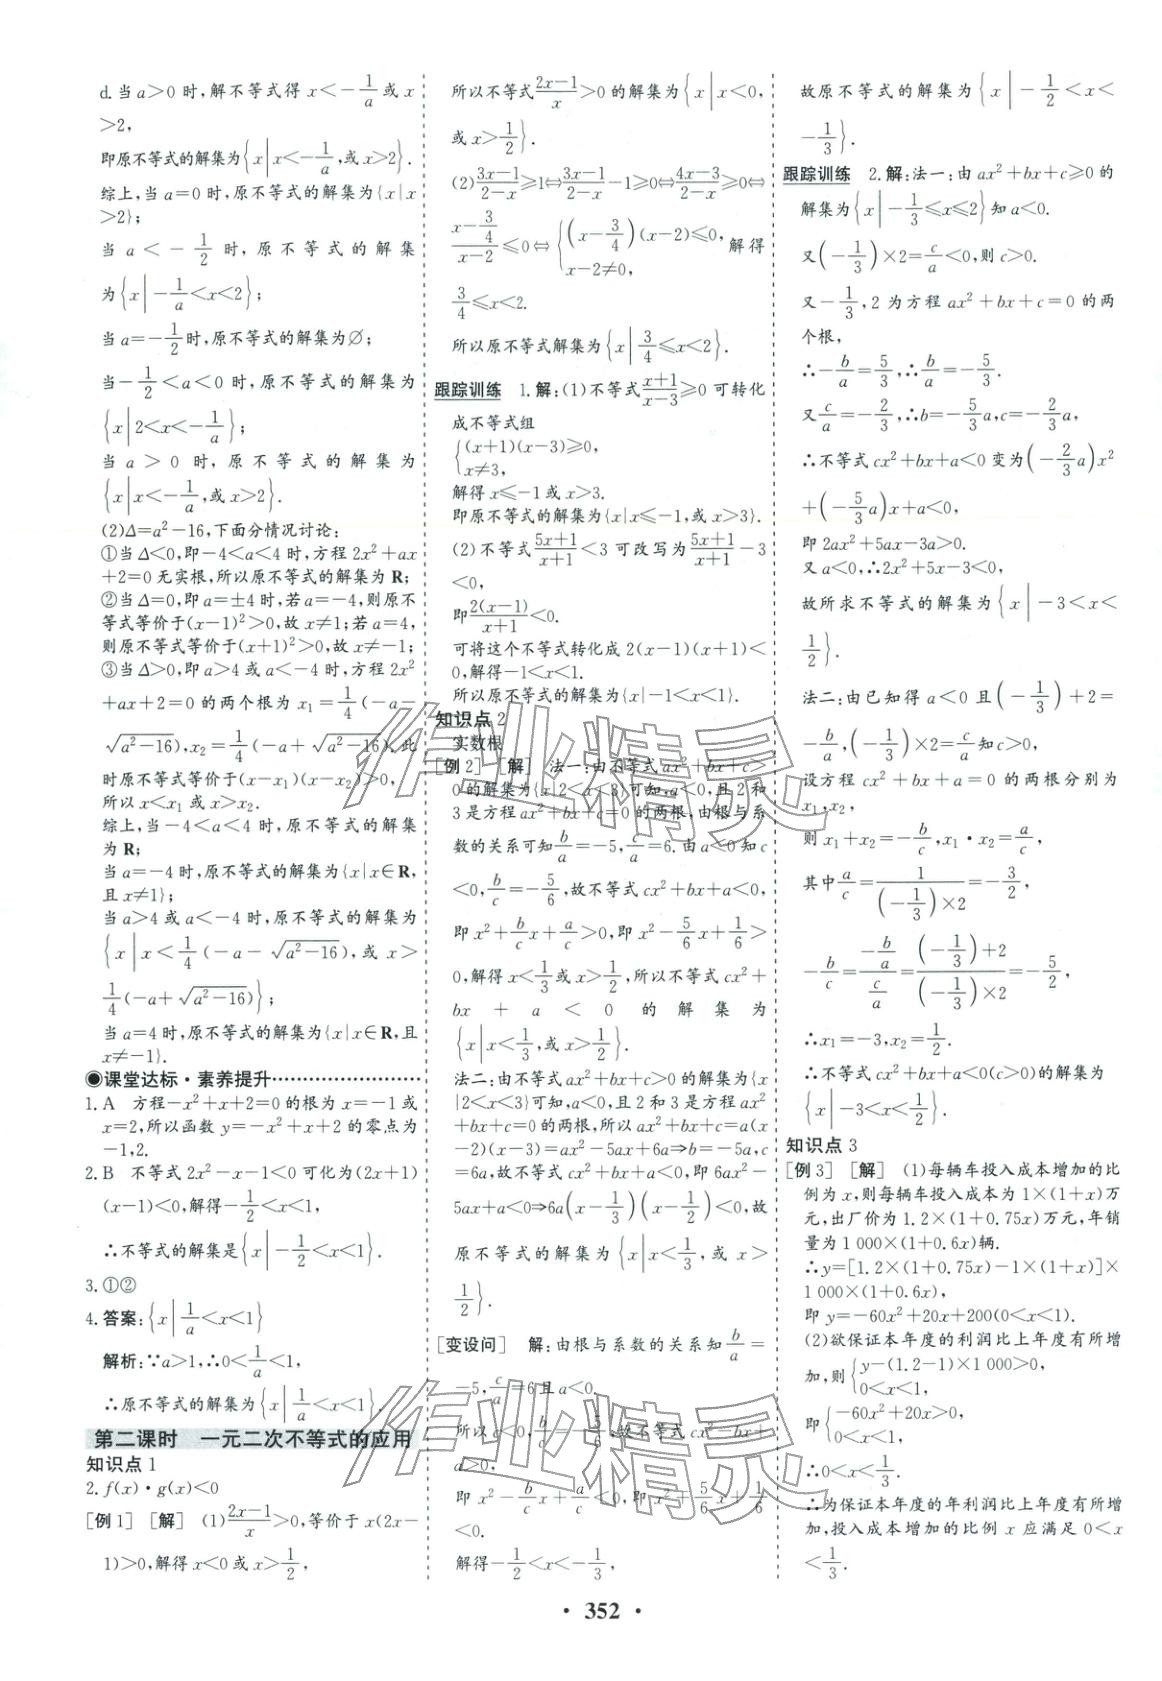 d.当a>0时,解不等式得x<-1/a或x
>2,
即原不等式的解集为{x|x<-1/a,或x>2}.
综上,当a=0时,原不等式的解集为{x|x
>2};
当a<-1/2时,原不等式的解集
为{x|-1/a<x<2};
当a=-1/2时,原不等式的解集为∅;
当-1/2<a<0时,原不等式的解集为
{x|2<x<-1/a};
当a>0时,原不等式的解集为
{x|x<-1/a,或x>2}.
(2)Δ=a²-16,下面分情况讨论:
①当Δ<0,即-4<a<4时,方程2x²+ax
+2=0无实根,所以原不等式的解集为R;
②当Δ=0,即a=±4时,若a=-4,则原不
等式等价于(x-1)²>0,故x≠1;若a=4,
则原不等式等价于(x+1)²>0,故x≠-1;
③当Δ>0,即a>4或a<-4时,方程2x²
+ax+2=0的两个根为x₁=1/4(-a-
√(a²-16)),x₂=1/4(-a+√(a²-16)).此
时原不等式等价于(x-x₁)(x-x₂)>0,
所以x<x₁或x>x₂.
综上,当-4<a<4时,原不等式的解集
为R;
当a=-4时,原不等式的解集为{x|x∈R,
且x≠1};
当a>4或a<-4时,原不等式的解集为
{x|x<1/4(-a-√(a²-16)),或x>
1/4(-a+√(a²-16))};
当a=4时,原不等式的解集为{x|x∈R,且
x≠-1}.
◉课堂达标·素养提升
1.A 方程-x²+x+2=0的根为x=-1或
x=2,所以函数y=-x²+x+2的零点为
-1,2.
2.B 不等式2x²-x-1<0可化为(2x+1)
(x-1)<0,解得-1/2<x<1,
∴不等式的解集是{x|-1/2<x<1}.
3.①②
4.答案:{x|1/a<x<1}
解析:∵a>1,∴0<1/a<1,
∴原不等式的解集为{x|1/a<x<1}.
第二课时 一元二次不等式的应用
知识点1
2.f(x)·g(x)<0
[例1] [解] (1)(2x-1)/x>0,等价于x(2x-
1)>0,解得x<0或x>1/2,
所以不等式(2x-1)/x>0的解集为{x|x<0,
或x>1/2}.
(2)(3x-1)/(2-x)≥1⇔(3x-1)/(2-x)-1≥0⇔(4x-3)/(2-x)≥0⇔
(x-3/4)/(x-2)≤0⇔{(x-3/4)(x-2)≤0, x-2≠0, 解得
3/4≤x<2.
所以原不等式解集为{x|3/4≤x<2}.
跟踪训练 1.解:(1)不等式(x+1)/(x-3)≥0可转化
成不等式组
{(x+1)(x-3)≥0,
x≠3,
解得x≤-1或x>3.
即原不等式的解集为{x|x≤-1,或x>3}.
(2)不等式(5x+1)/(x+1)<3可改写为(5x+1)/(x+1)-3
<0,
即2(x-1)/(x+1)<0.
可将这个不等式转化成2(x-1)(x+1)<
0,解得-1<x<1.
所以原不等式的解集为{x|-1<x<1}.
知识点2
实数根
[例2] [解] 法一:由不等式ax²+bx+c>
0的解集为{x|2<x<3}可知,a<0,且2和
3是方程ax²+bx+c=0的两根,由根与系
数的关系可知b/a=-5,c/a=6.由a<0知c
<0,b/c=-5/6,故不等式cx²+bx+a<0,
即x²+b/c x+a/c>0,即x²-5/6x+1/6>
0,解得x<1/3或x>1/2,所以不等式cx²+
bx+a<0的解集为
{x|x<1/3,或x>1/2}.
法二:由不等式ax²+bx+c>0的解集为{x
|2<x<3}可知,a<0,且2和3是方程ax²
+bx+c=0的两根,所以ax²+bx+c=a(x
-2)(x-3)=ax²-5ax+6a⇒b=-5a,c
=6a,故不等式cx²+bx+a<0,即6ax²-
5ax+a<0⇒6a(x-1/3)(x-1/2)<0,故
原不等式的解集为{x|x<1/3,或x>
1/2}.
[变设问] 解:由根与系数的关系知b/a=
-5,c/a=6且a<0.
所以c<0,b/c=-5/6,故不等式cx²-bx+
a>0,
即x²-b/c x+a/c<0,即x²+5/6x+1/6
<0.
解得-1/2<x<-1/3,
故原不等式的解集为{x|-1/2<x<
-1/3}.
跟踪训练 2.解:法一:由ax²+bx+c≥0的
解集为{x|-1/3≤x≤2}知a<0.
又(-1/3)×2=c/a<0,则c>0.
又-1/3,2为方程ax²+bx+c=0的两
个根,
∴-b/a=5/3,∴b/a=-5/3.
又c/a=-2/3,∴b=-5/3a,c=-2/3a,
∴不等式cx²+bx+a<0变为(-2/3a)x²
+(-5/3a)x+a<0,
即2ax²+5ax-3a>0.
又a<0,∴2x²+5x-3<0,
故所求不等式的解集为{x|-3<x<
1/2}.
法二:由已知得a<0且(-1/3)+2=
-b/a,(-1/3)×2=c/a知c>0,
设方程cx²+bx+a=0的两根分别为
x₁,x₂,
则x₁+x₂=-b/c,x₁·x₂=a/c,
其中a/c=1/((-1/3)×2)=-3/2,
-b/c=(-b/a)/(c/a)=((-1/3)+2)/((-1/3)×2)=-5/2,
∴x₁=-3,x₂=1/2.
∴不等式cx²+bx+a<0(c>0)的解集为
{x|-3<x<1/2}.
知识点3
[例3] [解] (1)每辆车投入成本增加的比
例为x,则每辆车投入成本为1×(1+x)万
元,出厂价为1.2×(1+0.75x)万元,年销
量为1 000×(1+0.6x)辆.
∴y=[1.2×(1+0.75x)-1×(1+x)]×
1 000×(1+0.6x),
即y=-60x²+20x+200(0<x<1).
(2)欲保证本年度的利润比上年度有所增
加,则{y-(1.2-1)×1 000>0,
0<x<1,
即{-60x²+20x>0,
0<x<1.
∴0<x<1/3.
∴为保证本年度的年利润比上年度有所增
加,投入成本增加的比例x应满足0<x
<1/3.
·352·
作业精灵
作业精灵